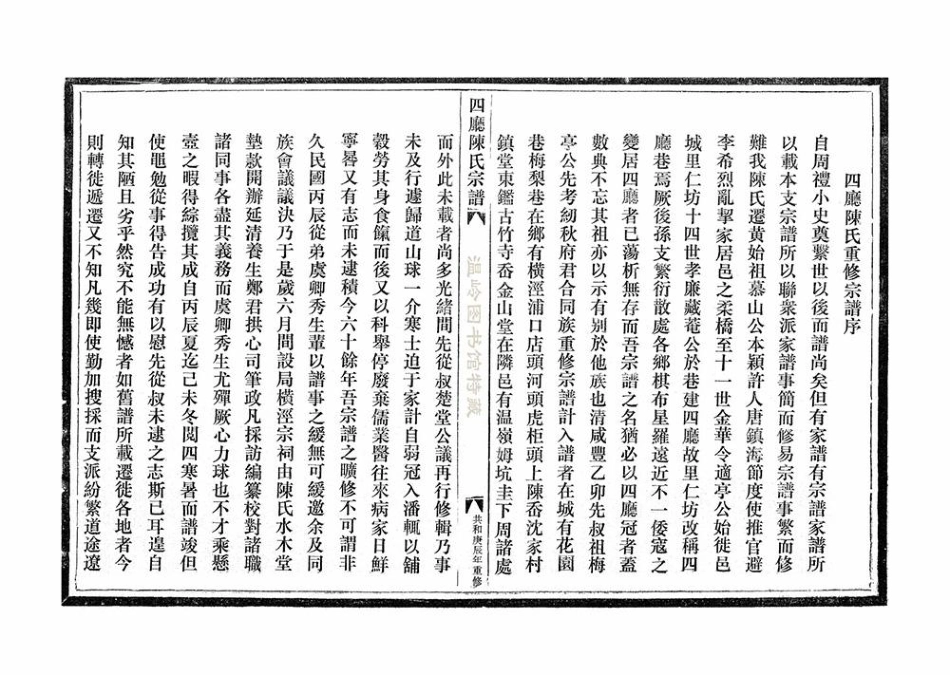 四廳陳氏重修宗譜序
自周禮小史奠繫世以後而譜尚矣但有家譜有宗譜家譜所
以載本支宗譜所以聯衆派家譜事簡而修易宗譜事繁而修
難我陳氏遷黃始祖慕山公本穎許人唐鎮海節度使推官避
李希烈亂挈家居邑之柔橋至十一世金華令適亭公始徙邑
城里仁坊十四世孝廉藏菴公於巷建四廳故里仁坊改稱四
廳巷焉厥後孫支繁衍散處各鄉棋布星羅遠近不一倭寇之
變居四廳者已蕩析無存而吾宗譜之名猶必以四廳冠者蓋
數典不忘其祖亦以示有別於他族也清咸豐乙卯先叔祖梅
亭公先考紉秋府君合同族重修宗譜計入譜者在城有花園
巷梅梨巷在鄉有橫涇浦口店頭河頭虎柜頭上陳岙沈家村
鎮堂東鑑古竹寺岙金山堂在隣邑有温嶺姆坑圭下周諸處
四廳陳氏宗譜
共和庚辰年重修
而外此未載者尚多光緒間先從叔楚堂公議再行修輯乃事
未及行遽歸道山球一介寒士迫于家計自弱冠入潘輒以舘
穀勞其身食餼而後又以科舉停廢棄儒業醫往來病家日鮮
寧晷又有志而未逮積今六十餘年吾宗譜之曠修不可謂非
久民國丙辰從弟虞卿秀生輩以譜事之緩無可緩邀余及同
族會議議決乃于是歲六月間設局橫涇宗祠由陳氏水木堂
墊款開辦延清養生鄭君拱心司筆政凡採訪編纂校對諸職
諸同事各盡其義務而虞卿秀生尤殫厥心力球也不才乘懸
壼之暇得綜攬其成自丙辰夏迄己未冬閱四寒暑而譜竣但
使黽勉從事得告成功有以慰先從叔未逮之志斯已耳遑自
知其陋且劣乎然究不能無憾者如舊譜所載遷徙各地者今
則轉徙遞遷又不知凡幾即使勤加搜採而支派紛繁道途遼
温岭图书馆特藏